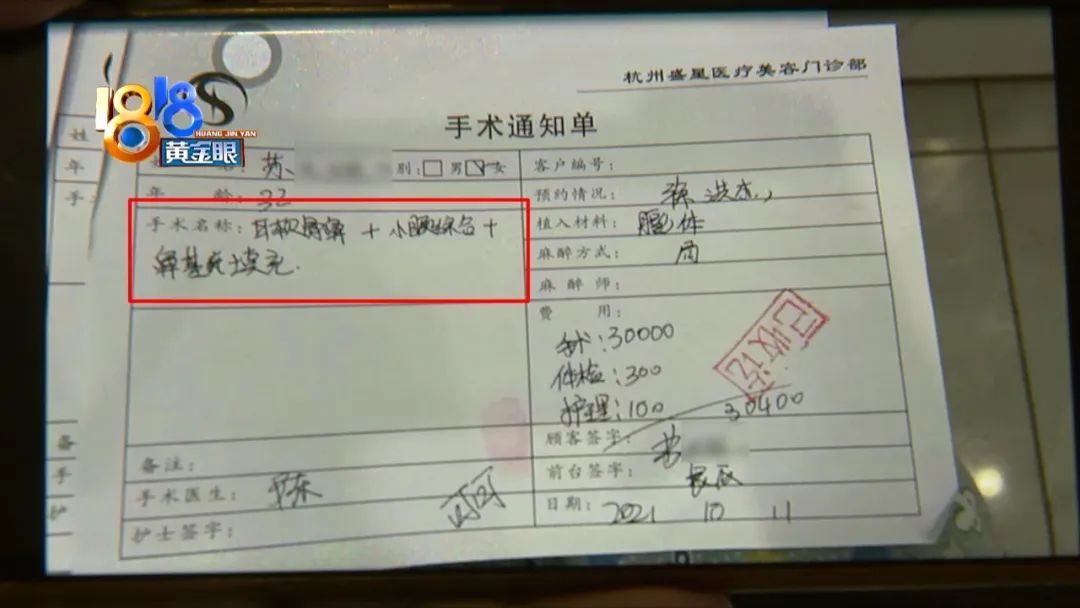 1818
HUANG JIN YAN
黄金眼
杭州盛星医疗美容门诊部
手术通知单
姓
年
手
苏
别：□男☑女
客户编号：
年 龄：32
预约情况：
手术名称：耳软骨鼻＋小腿综合＋
鼻基底填充.
植入材料：膨体
麻醉方式：局
麻醉师：
费 用：
手术：30000
体检：300
护理：100
30400
已收讫
备注：
顾客签字：
手术医生：陈
前台签字：
护士签字：
日期：2021 10 11
备
手
护